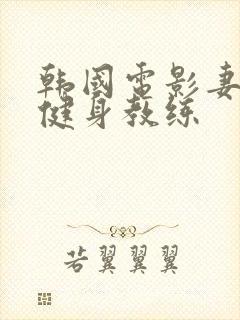 韩国电影妻
健身教练
若翼翼翼